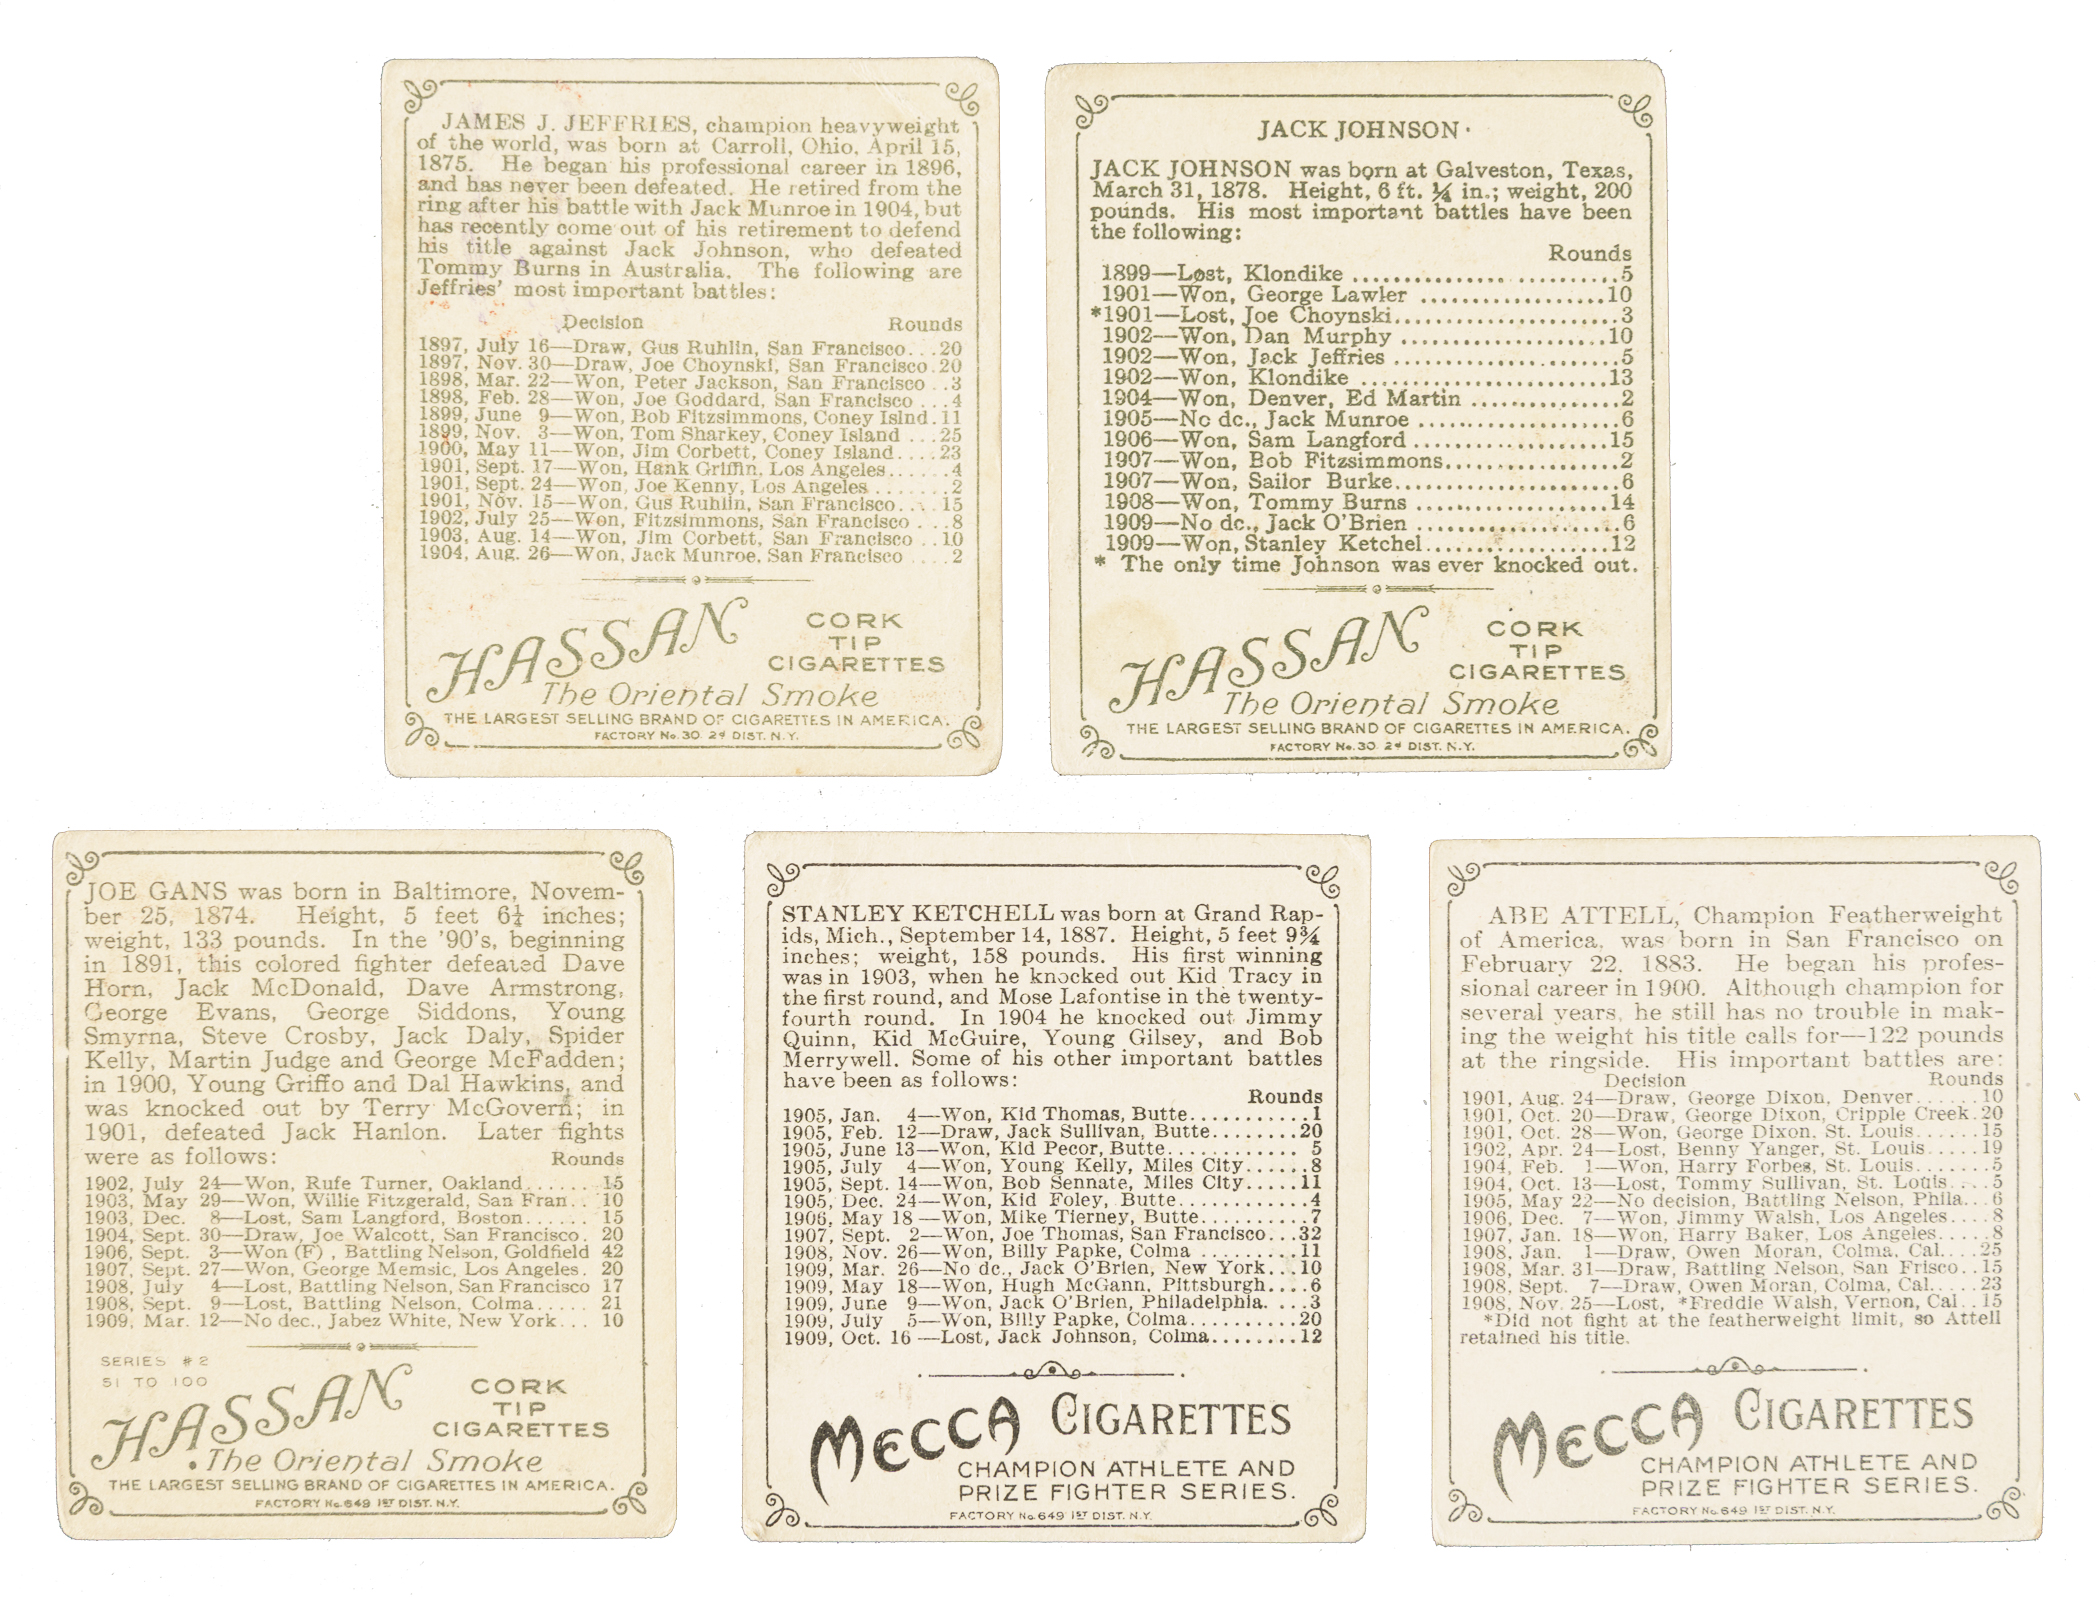 JAMES J. JEFFRIES, champion heavyweight
of the world, was born at Carroll, Ohio, April 15,
1875. He began his professional career in 1896,
and has never been defeated. He retired from the
ring after his battle with Jack Munroe in 1904, but
has recently come out of his retirement to defend
his title against Jack Johnson, who defeated
Tommy Burns in Australia. The following are
Jeffries' most important battles:
Decision Rounds
1897, July 16—Draw, Gus Ruhlin, San Francisco...20
1897, Nov. 30—Draw, Joe Choynski, San Francisco.20
1898, Mar. 22—Won, Peter Jackson, San Francisco ..3
1898, Feb. 28—Won, Joe Goddard, San Francisco ...4
1899, June 9—Won, Bob Fitzsimmons, Coney Islnd.11
1899, Nov. 3—Won, Tom Sharkey, Coney Island ...25
1900, May 11—Won, Jim Corbett, Coney Island....23
1901, Sept. 17—Won, Hank Griffin, Los Angeles......4
1901, Sept. 24—Won, Joe Kenny, Los Angeles .......2
1901, Nov. 15—Won, Gus Ruhlin, San Francisco... 15
1902, July 25—Won, Fitzsimmons, San Francisco ...8
1903, Aug. 14—Won, Jim Corbett, San Francisco ..10
1904, Aug. 26—Won, Jack Munroe, San Francisco ....2
HASSAN
CORK
TIP
CIGARETTES
The Oriental Smoke
THE LARGEST SELLING BRAND OF CIGARETTES IN AMERICA.
FACTORY No. 30 2d DIST. N.Y.
JACK JOHNSON
JACK JOHNSON was born at Galveston, Texas,
March 31, 1878. Height, 6 ft. ¼ in.; weight, 200
pounds. His most important battles have been
the following:
Rounds
1899—Lost, Klondike ..........................5
1901—Won, George Lawler ..................10
*1901—Lost, Joe Choynski......................3
1902—Won, Dan Murphy ....................10
1902—Won, Jack Jeffries .....................5
1902—Won, Klondike ........................13
1904—Won, Denver, Ed Martin ...............2
1905—No dc., Jack Munroe ....................6
1906—Won, Sam Langford ....................15
1907—Won, Bob Fitzsimmons.................2
1907—Won, Sailor Burke......................6
1908—Won, Tommy Burns ...................14
1909—No dc., Jack O'Brien ....................6
1909—Won, Stanley Ketchel..................12
* The only time Johnson was ever knocked out.
HASSAN
CORK
TIP
CIGARETTES
The Oriental Smoke
THE LARGEST SELLING BRAND OF CIGARETTES IN AMERICA.
FACTORY No. 30 2d DIST. N.Y.
JOE GANS was born in Baltimore, Novem-
ber 25, 1874. Height, 5 feet 6½ inches;
weight, 133 pounds. In the '90's, beginning
in 1891, this colored fighter defeated Dave
Horn, Jack McDonald, Dave Armstrong,
George Evans, George Siddons, Young
Smyrna, Steve Crosby, Jack Daly, Spider
Kelly, Martin Judge and George McFadden;
in 1900, Young Griffo and Dal Hawkins, and
was knocked out by Terry McGovern; in
1901, defeated Jack Hanlon. Later fights
were as follows: Rounds
1902, July 24—Won, Rufe Turner, Oakland...... 15
1903, May 29—Won, Willie Fitzgerald, San Fran.. 10
1903, Dec. 8—Lost, Sam Langford, Boston...... 15
1904, Sept. 30—Draw, Joe Walcott, San Francisco. 20
1906, Sept. 3—Won (F), Battling Nelson, Goldfield 42
1907, Sept. 27—Won, George Memsic, Los Angeles. 20
1908, July 4—Lost, Battling Nelson, San Francisco 17
1908, Sept. 9—Lost, Battling Nelson, Colma..... 21
1909, Mar. 12—No dec., Jabez White, New York... 10
SERIES #2
51 TO 100
HASSAN
CORK
TIP
CIGARETTES
The Oriental Smoke
THE LARGEST SELLING BRAND OF CIGARETTES IN AMERICA.
FACTORY No. 649 1ST DIST. N.Y.
STANLEY KETCHELL was born at Grand Rap-
ids, Mich., September 14, 1887. Height, 5 feet 9¾
inches; weight, 158 pounds. His first winning
was in 1903, when he knocked out Kid Tracy in
the first round, and Mose Lafontise in the twenty-
fourth round. In 1904 he knocked out Jimmy
Quinn, Kid McGuire, Young Gilsey, and Bob
Merrywell. Some of his other important battles
have been as follows:
Rounds
1905, Jan. 4—Won, Kid Thomas, Butte...........1
1905, Feb. 12—Draw, Jack Sullivan, Butte........20
1905, June 13—Won, Kid Pecor, Butte............ 5
1905, July 4—Won, Young Kelly, Miles City......8
1905, Sept. 14—Won, Bob Sennate, Miles City.....11
1905, Dec. 24—Won, Kid Foley, Butte............4
1906, May 18—Won, Mike Tierney, Butte..........7
1907, Sept. 2—Won, Joe Thomas, San Francisco...32
1908, Nov. 26—Won, Billy Papke, Colma .........11
1909, Mar. 26—No dc., Jack O'Brien, New York...10
1909, May 18—Won, Hugh McGann, Pittsburgh....6
1909, June 9—Won, Jack O'Brien, Philadelphia. ...3
1909, July 5—Won, Billy Papke, Colma..........20
1909, Oct. 16—Lost, Jack Johnson, Colma........12
MECCA CIGARETTES
CHAMPION ATHLETE AND
PRIZE FIGHTER SERIES.
FACTORY No. 649 1ST DIST. N.Y.
ABE ATTELL, Champion Featherweight
of America, was born in San Francisco on
February 22, 1883. He began his profes-
sional career in 1900. Although champion for
several years, he still has no trouble in mak-
ing the weight his title calls for—122 pounds
at the ringside. His important battles are:
Decision Rounds
1901, Aug. 24—Draw, George Dixon, Denver......10
1901, Oct. 20—Draw, George Dixon, Cripple Creek.20
1901, Oct. 28—Won, George Dixon, St. Louis......15
1902, Apr. 24—Lost, Benny Yanger, St. Louis.....19
1904, Feb. 1—Won, Harry Forbes, St. Louis.......5
1904, Oct. 13—Lost, Tommy Sullivan, St. Louis....5
1905, May 22—No decision, Battling Nelson, Phila...6
1906, Dec. 7—Won, Jimmy Walsh, Los Angeles....8
1907, Jan. 18—Won, Harry Baker, Los Angeles.....8
1908, Jan. 1—Draw, Owen Moran, Colma, Cal....25
1908, Mar. 31—Draw, Battling Nelson, San Frisco..15
1908, Sept. 7—Draw, Owen Moran, Colma, Cal.....23
1908, Nov. 25—Lost, *Freddie Walsh, Vernon, Cal..15
*Did not fight at the featherweight limit, so Attell
retained his title.
MECCA CIGARETTES
CHAMPION ATHLETE AND
PRIZE FIGHTER SERIES.
FACTORY No. 649 1ST DIST. N.Y.